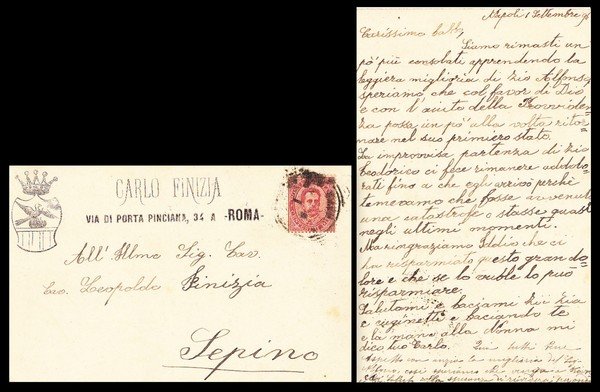 CARLO FINIZIA
VIA DI PORTA PINCIANA, 34 A -ROMA-
All' Illmo Sig. Cav.
Cav. Leopoldo Finizia
Sepino
Napoli 1 Settembre
Carissimo babbo
Siamo rimasti un
pò più consolati apprendendo la
leggiera miglioria di zio Alfonso
speriamo che col favor di Dio
e con l'aiuto della Provviden-
za possa un pò alla volta ritor-
nare nel suo primiero stato.
La improvvisa partenza di zio
Teodorico ci fece rimanere addolo-
rati fino a che egli arrivò perchè
temevamo che fosse avvenuta
una catastrofe o stasse quasi
negli ultimi momenti.
Ma ringraziamo Iddio che ci
ha risparmiato questo gran do-
lore e che se lo vuole lo può
risparmiare.
Salutami e baciami zia
e cuginetti e baciando te
e la mano alla Nonna mi
dico tuo Carlo.
Aspetto con ansia la miglioria di